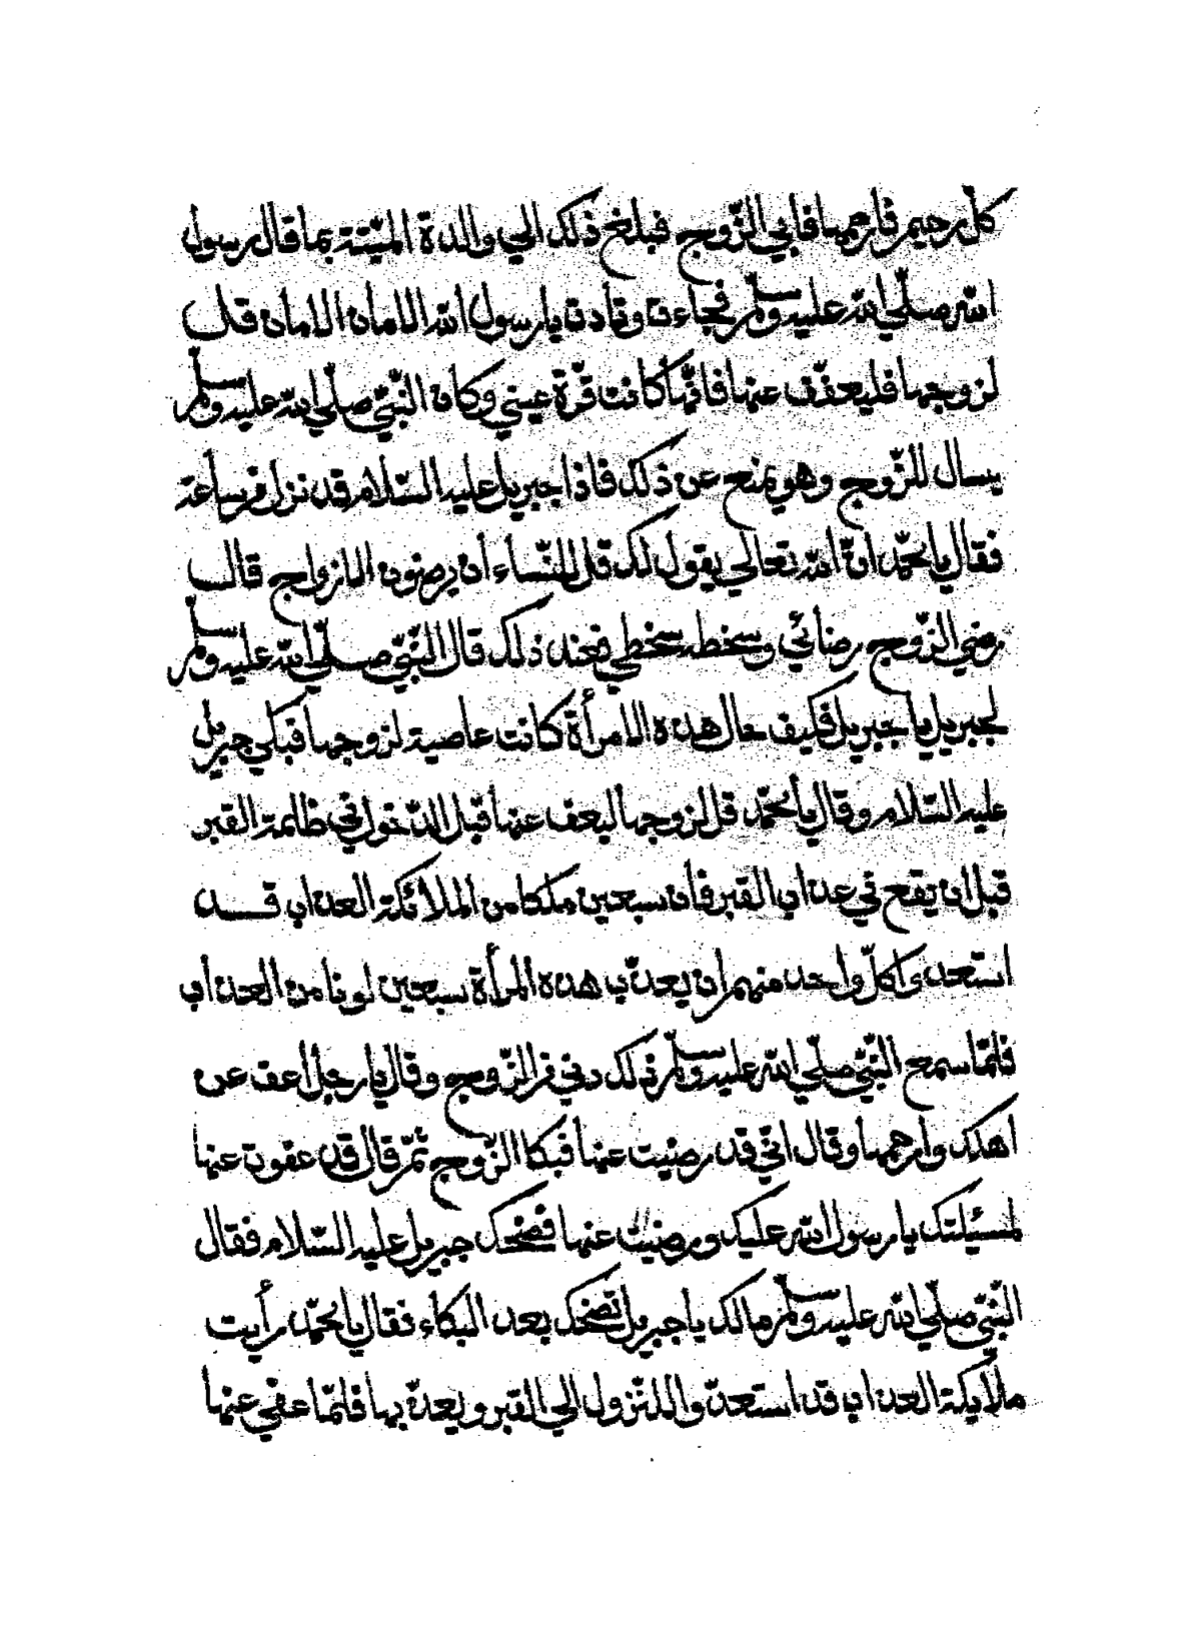 كلّ رحيم فارحمها فابي الزّوج فبلغ ذلك الي والدة الميّتة بما قال رسول
الله صلّي الله عليه وسلّم فجاءت ونادت يا رسول الله الامان الامان قل
لزوجها فليعفّ عنها فانّها كانت قرّة عيني وكان النّبيّ صلّي الله عليه وسلّم
يسال للزّوج وهو يمنع عن ذلك فاذا جبريل عليه السّلام قد نزل من ساعته
فقال يا محمّد انّ الله تعالي يقول لك قل للنّساء أن يرضون الازواج قال
رضي الزّوج رضائي وسخطه سخطي فعند ذلك قال النّبيّ صلّي الله عليه وسلّم
لجبريل يا جبريل فكيف حال هذه الامرأة كانت عاصية لزوجها فبكي جبريل
عليه السّلام وقال يا محمّد قل لزوجها ليعف عنها قبل الدّخول في ظلمة القبر
قبل ان يقع في عذاب القبر فأن سبعين ملكا من الملائكة العذاب قد
استعدي كلّ واحد منهم ان يعذّب هذه المرأة سبعين لونا من العذاب
فلمّا سمع النّبيّ صلّي الله عليه وسلّم ذلك دني من الزّوج وقال يا رجل أعف عن
اهلك وارحمها وقال انّي قد رضيت عنها فبكا الزّوج ثمّ قال قد عفوت عنها
لمسئلتك يا رسول الله عليك ورضيت عنها فضحك جبريل عليه السّلام فقال
النّبيّ صلّي الله عليه وسلّم مالك يا جبريل تضحك بعد البكاء فقال يا محمّد رأيت
ملائكة العذاب قد استعدّوا للنّزول الي القبر ويعذّبها فلمّا عفي عنها